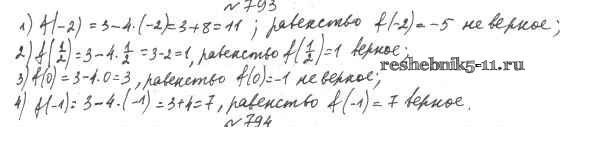 №793
1) f(-2) = 3-4·(-2)=3+8=11; равенство f(-2)=-5 не верное;
2) f(1/2)=3-4·1/2=3-2=1, равенство f(1/2)=1 верное;
reshebnik5-11.ru
3) f(0)=3-4·0=3, равенство f(0)=-1 не верное;
4) f(-1)=3-4·(-1)=3+4=7, равенство f(-1)=7 верное.
№794